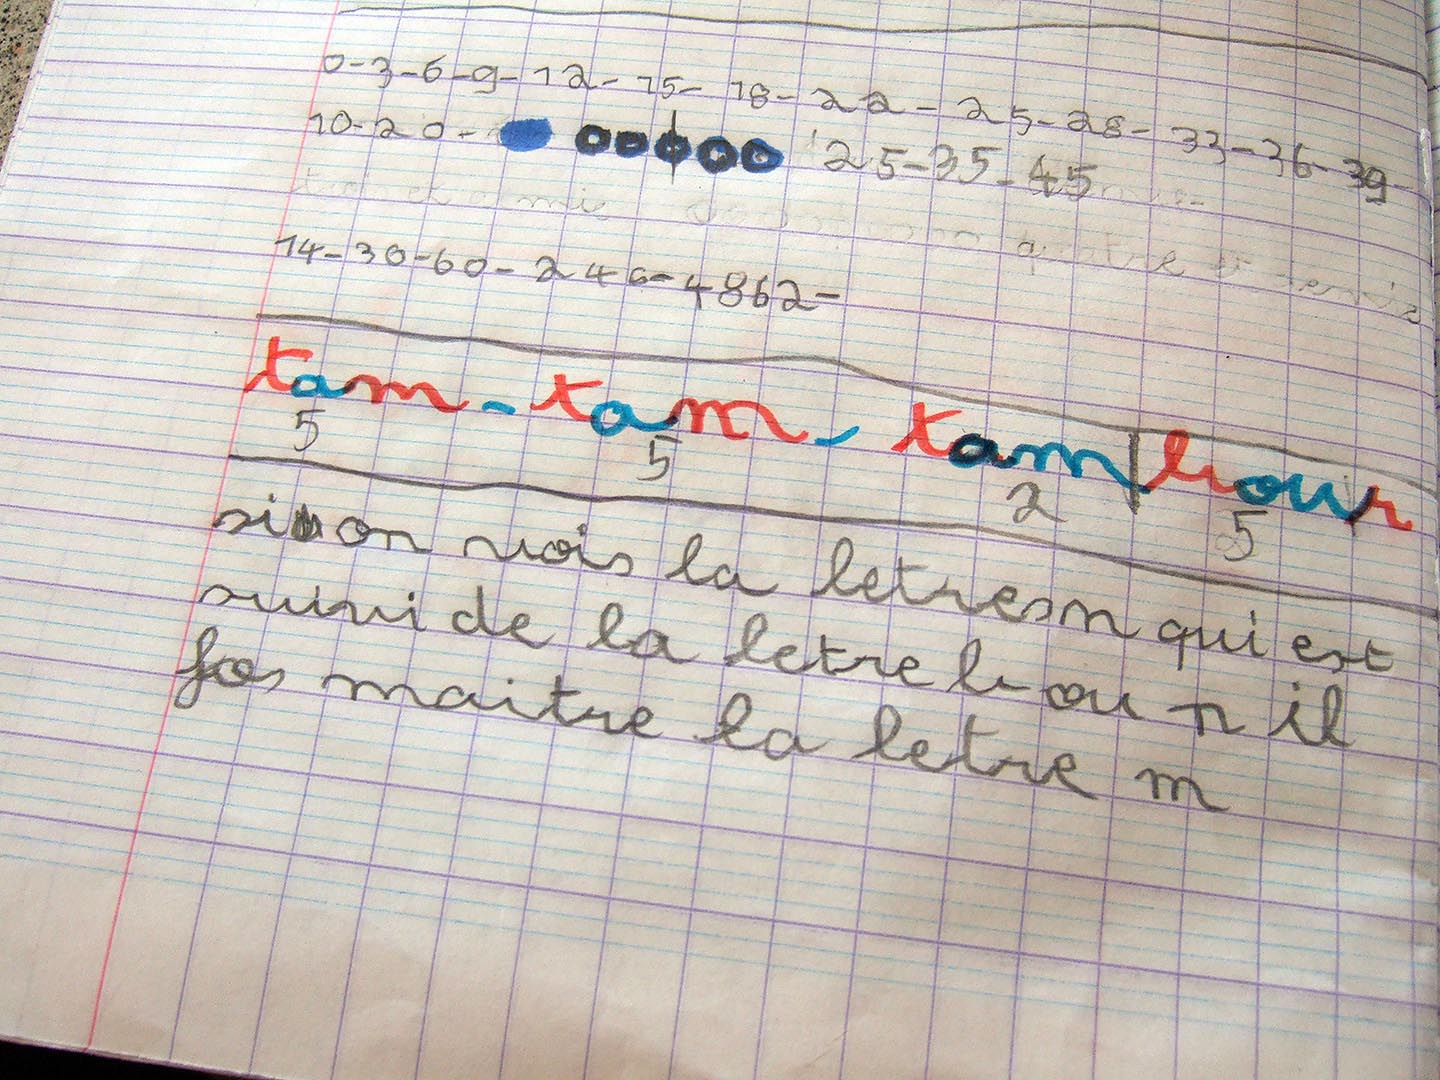 0-3-6-9-12-15-18-22-25-28-33-36-39
10-20- 25-35-45
quatre
14-30-60-246-4862-
tam-tam-tam|bour
5 5 2 5
si on vois la letresm qui est
suivi de la letre b ou n il
fos maitre la letre m